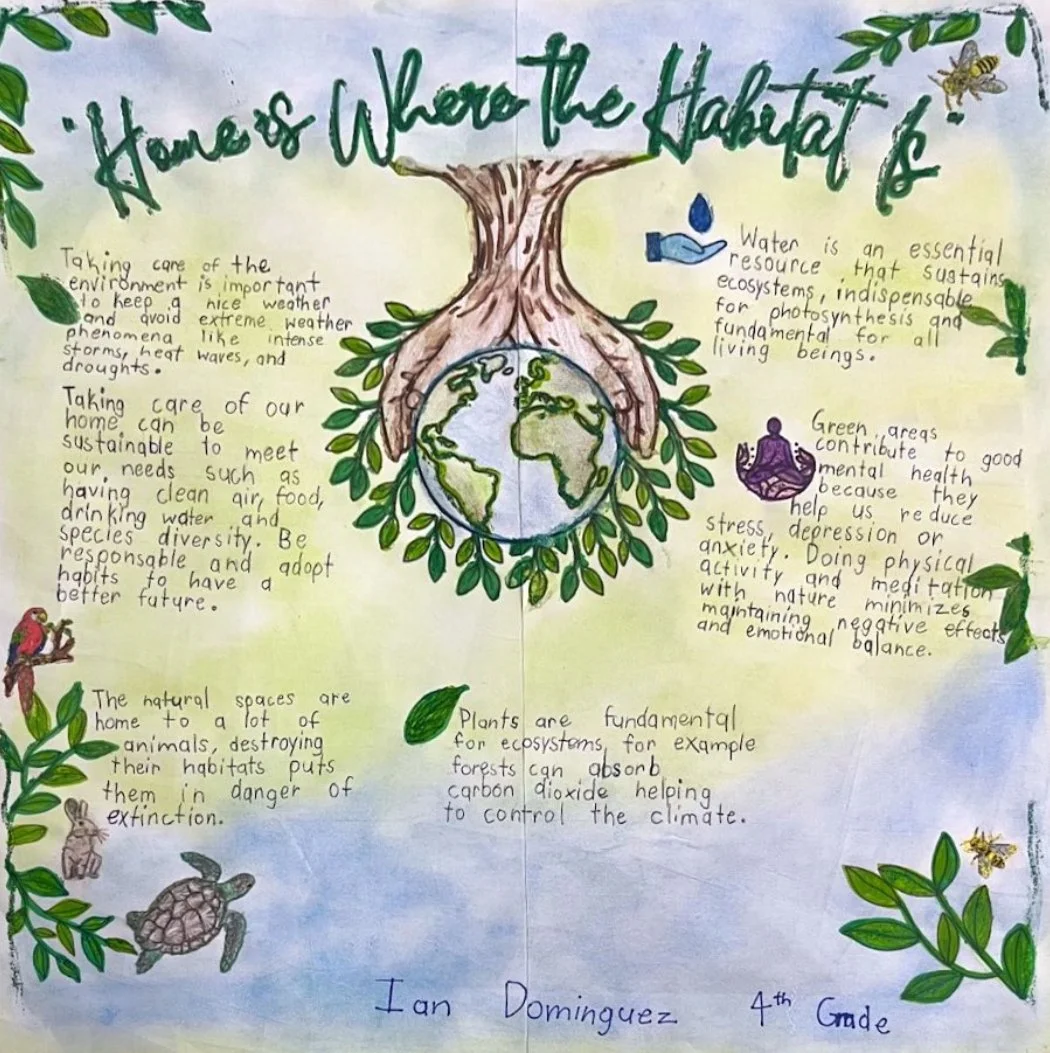 "Home is Where the Habitat Is"
Taking care of the
environment is important
to keep a nice weather
and avoid extreme weather
phenomena like intense
storms, heat waves, and
droughts.
Taking care of our
home can be
sustainable to meet
our needs such as
having clean air, food,
drinking water and
species diversity. Be
responsable and adopt
habits to have a
better future.
The natural spaces are
home to a lot of
animals, destroying
their habitats puts
them in danger of
extinction.
Plants are fundamental
for ecosystems, for example
forests can absorb
carbon dioxide helping
to control the climate.
Water is an essential
resource that sustains
ecosystems, indispensable
for photosynthesis and
fundamental for all
living beings.
Green areas
contribute to good
mental health
because they
help us reduce
stress, depression or
anxiety. Doing physical
activity and meditation
with nature minimizes
maintaining negative effects
and emotional balance.
Ian Dominguez 4th Grade